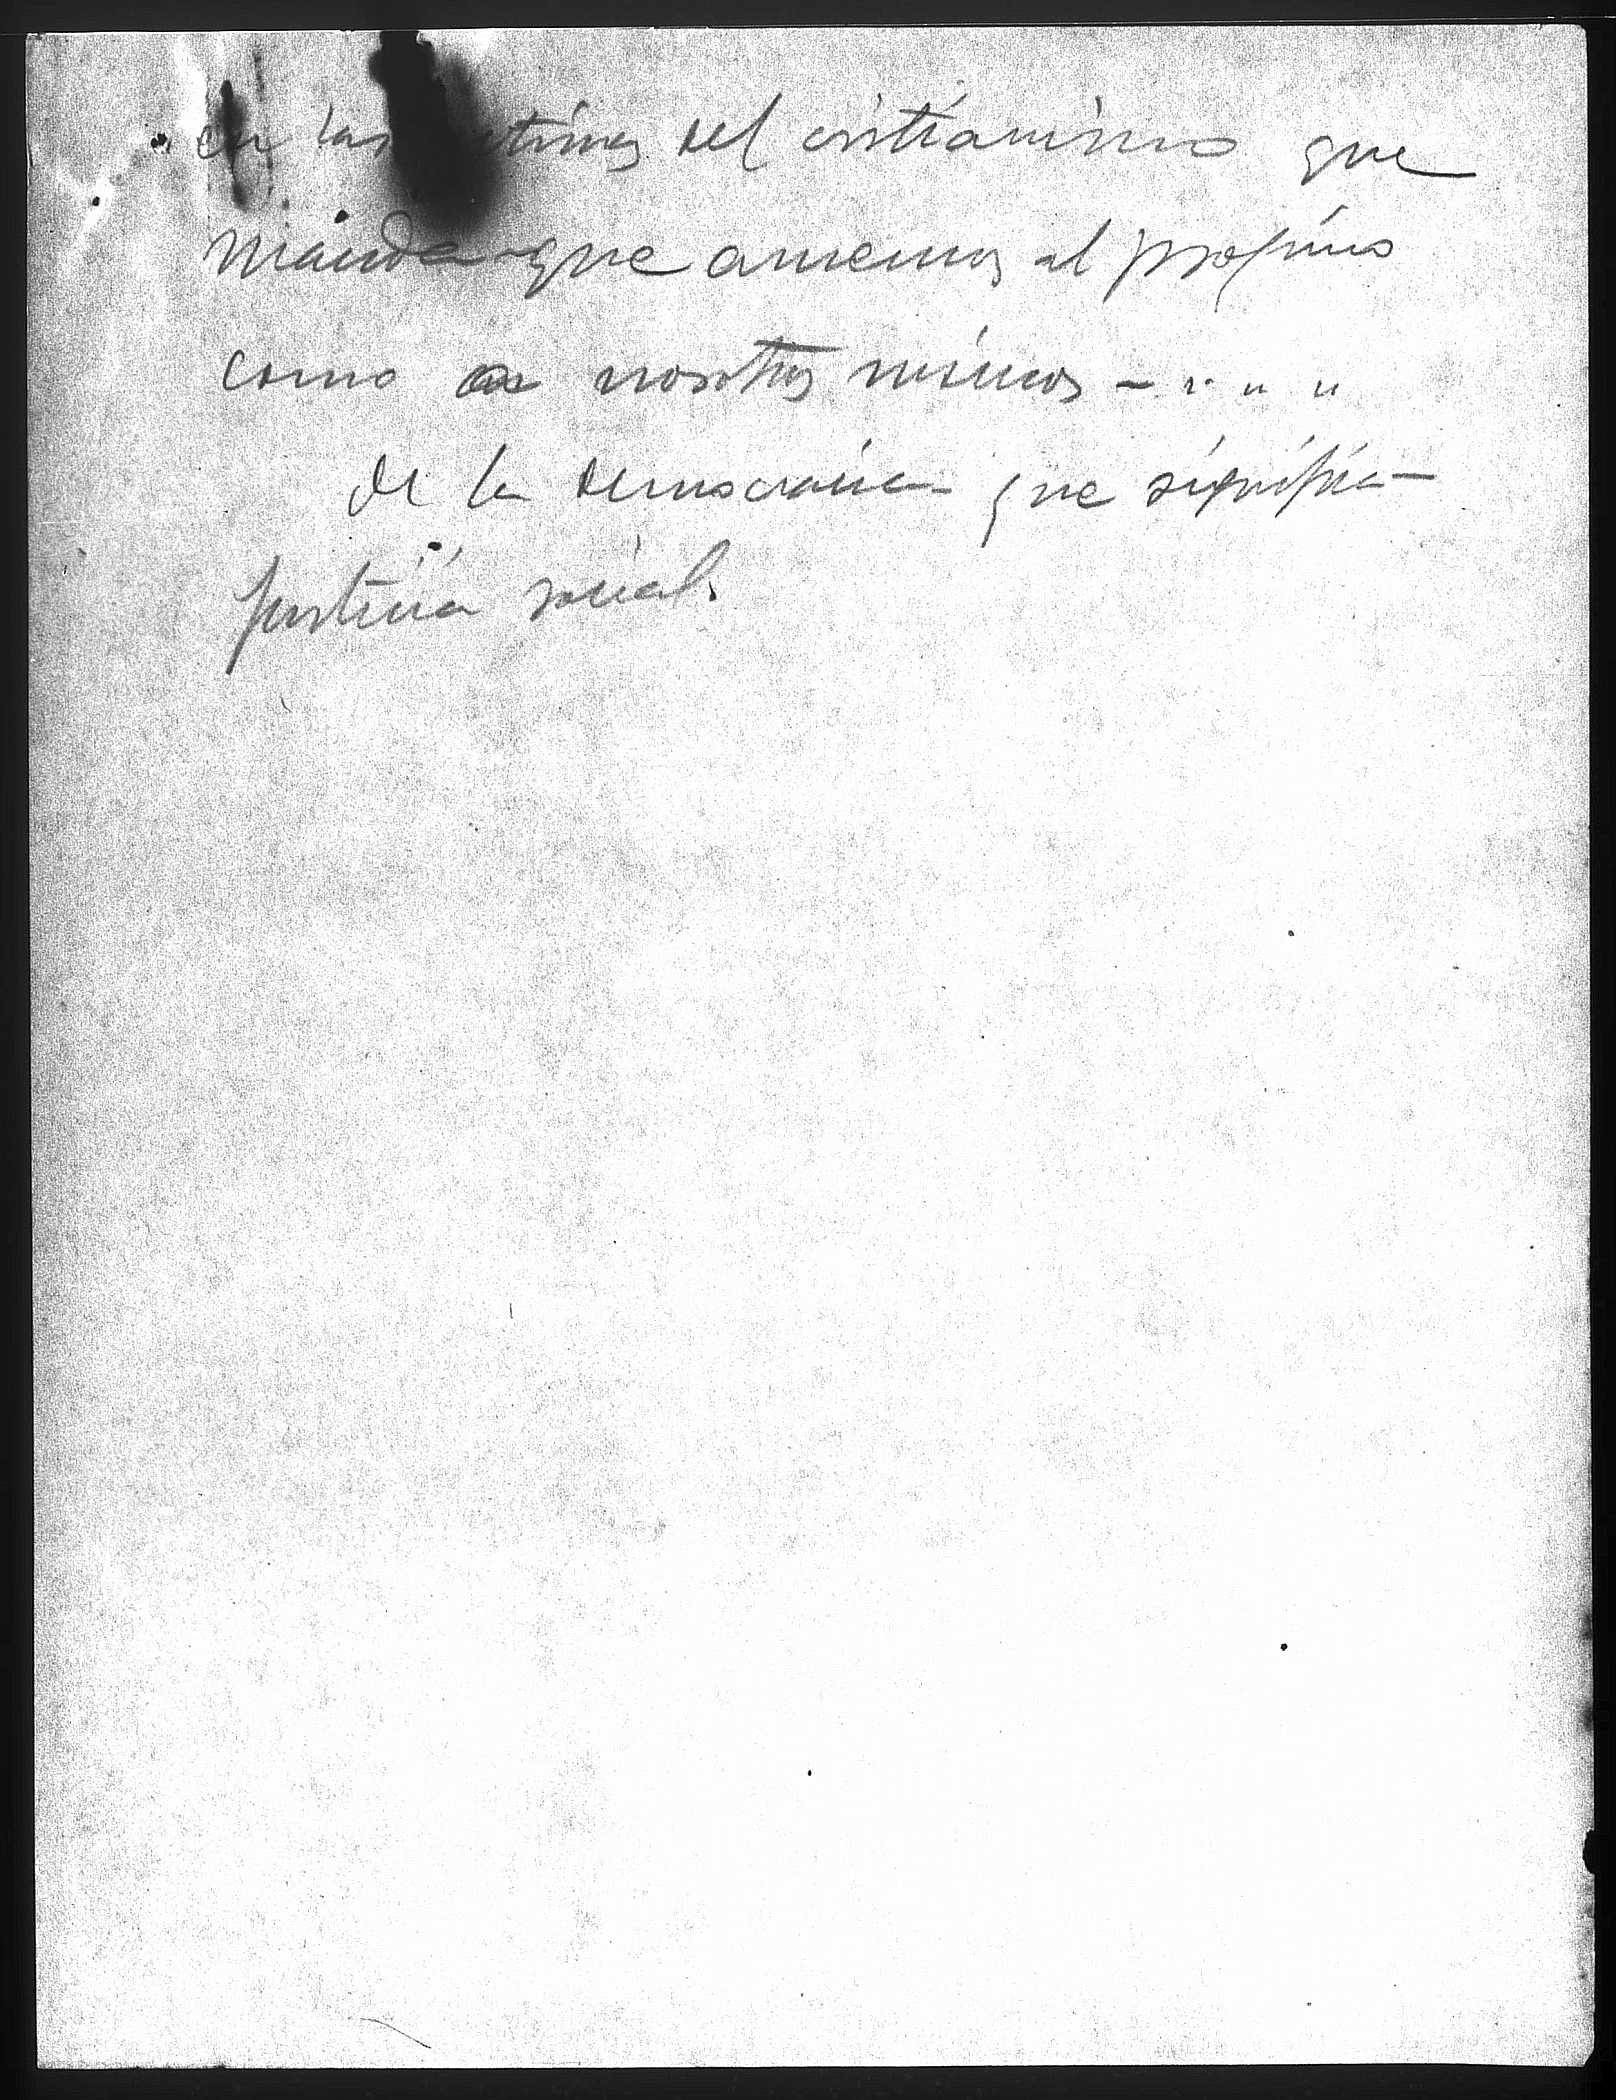 en las doctrinas del cristianismo que
manda que amemos al projimo
como a nosotros mismos - " " "
de la democracia que significa
justicia social.